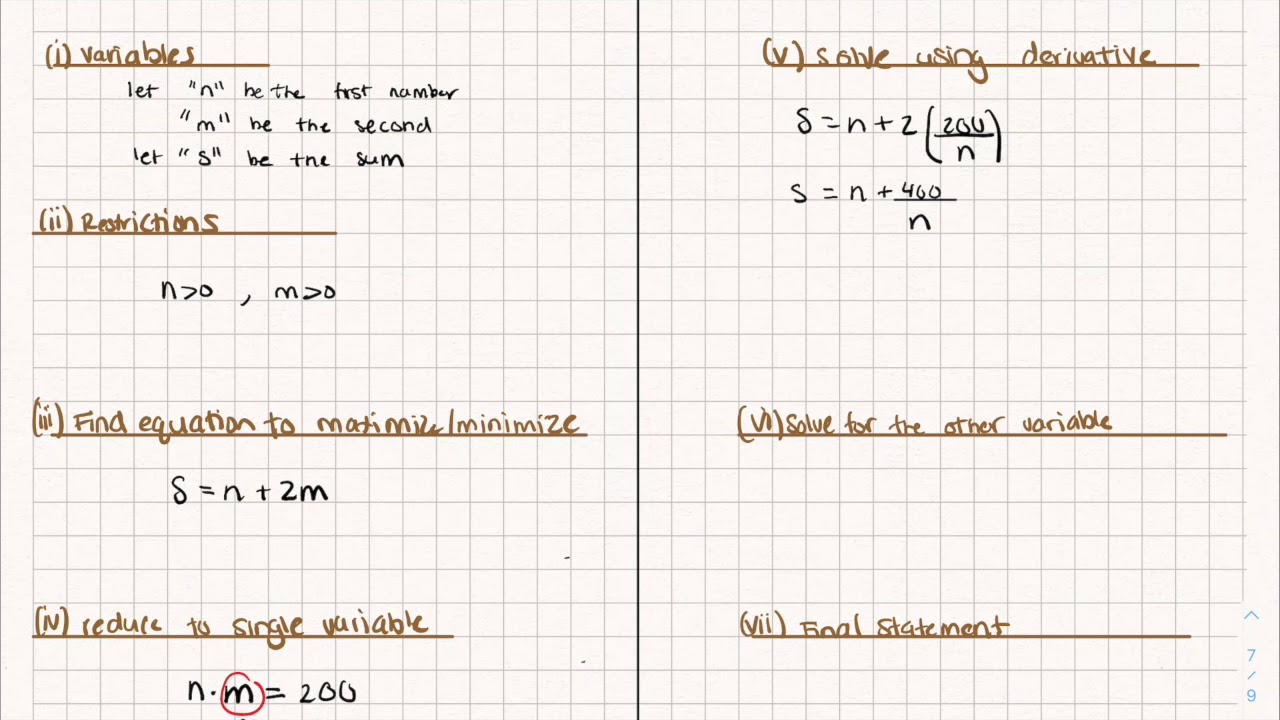 (i) Variables
let "n" be the first number
"m" be the second
let "s" be the sum
(ii) Restrictions
n>0 , m>0
(iii) Find equation to maximize/minimize
S = n + 2m
(iv) reduce to single variable
n · m = 200
(v) Solve using derivative
S = n + 2(200/n)
S = n + 400/n
(vi) Solve for the other variable
(vii) Final Statement
7
/
9